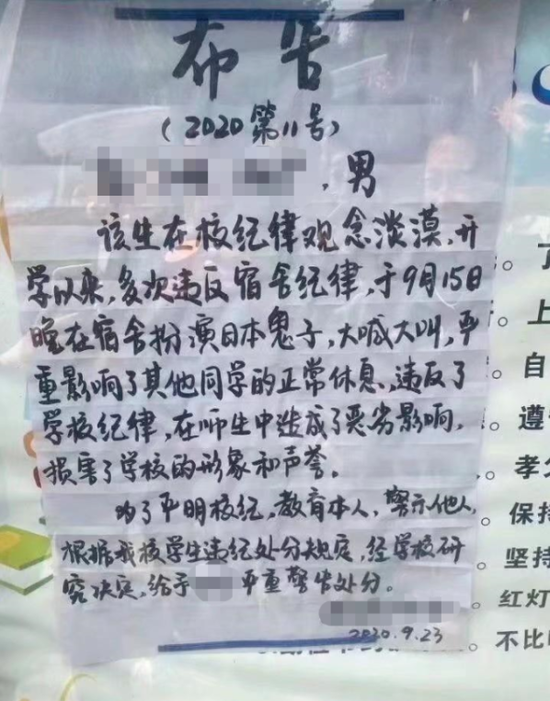 布告
(2020第11号)
，男
该生在校纪律观念淡漠，开
学以来，多次违反宿舍纪律，于9月15日
晚在宿舍扮演日本鬼子，大喊大叫，严
重影响了其他同学的正常休息，违反了
学校纪律，在师生中造成了恶劣影响，
损害了学校的形象和声誉。
为了严明校纪，教育本人，警示他人，
根据我校学生违纪处分规定，经学校研
究决定，给予 严重警告处分。
2020.9.23
上
自
遵
孝
保持
坚持
红灯
不比